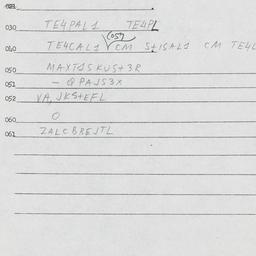 030 TE4PAL1 TE4PL
(051)
040 TE4CAL1 CM S+1SAL1 CM TE4L
050 MAXT1SKUS+3R
051 - QPAJS3X
052 VA, JKS+EFL
060 O
061 ZALCBREJTL